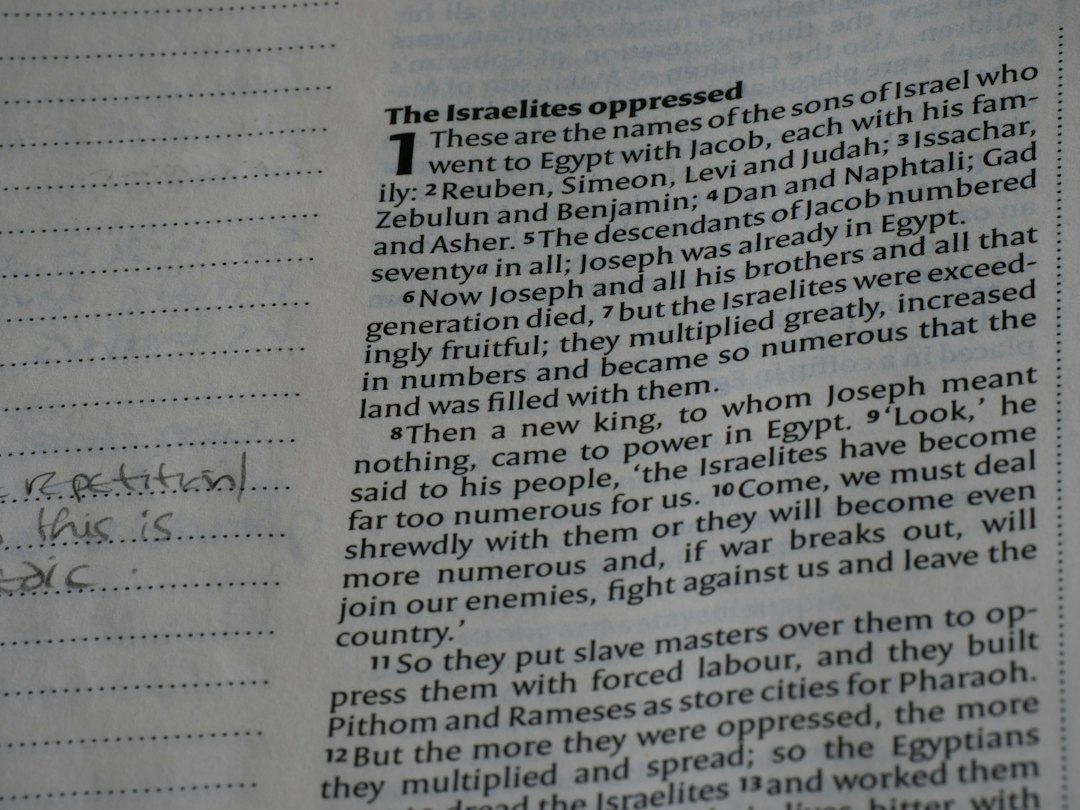 The Israelites oppressed
1 These are the names of the sons of Israel who
went to Egypt with Jacob, each with his fam-
ily: 2 Reuben, Simeon, Levi and Judah; 3 Issachar,
Zebulun and Benjamin; 4 Dan and Naphtali; Gad
and Asher. 5 The descendants of Jacob numbered
seventy a in all; Joseph was already in Egypt.
6 Now Joseph and all his brothers and all that
generation died, 7 but the Israelites were exceed-
ingly fruitful; they multiplied greatly, increased
in numbers and became so numerous that the
land was filled with them.
8 Then a new king, to whom Joseph meant
nothing, came to power in Egypt. 9 ‘Look,’ he
said to his people, ‘the Israelites have become
far too numerous for us. 10 Come, we must deal
shrewdly with them or they will become even
more numerous and, if war breaks out, will
join our enemies, fight against us and leave the
country.’
11 So they put slave masters over them to op-
press them with forced labour, and they built
Pithom and Rameses as store cities for Pharaoh.
12 But the more they were oppressed, the more
they multiplied and spread; so the Egyptians
dread the Israelites 13 and worked them
bitter with
repetition/
this is